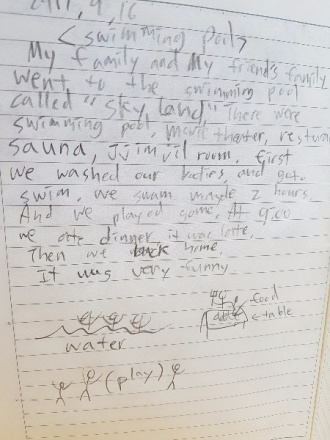 , 9, 16
< swimming pool>
My family and My friend's family
went to the swimming pool
called "sky land". There were
swimming pool, movie theater,
sauna, Jjimjil room. First
we washed our bodies, and go
swim, we swam maybe 2 hours.
And we played game. At 9:00
we ate dinner it was late.
Then we back home.
It was very funny.
food
table
water
(play)